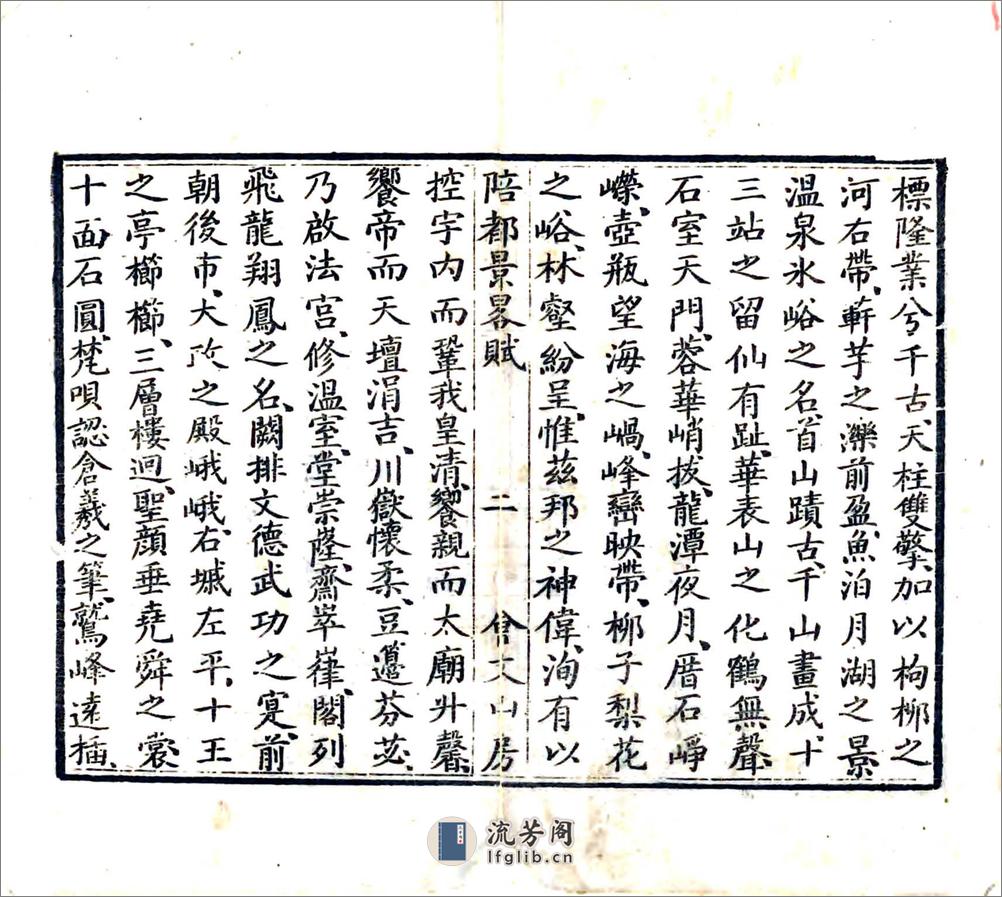 標隆業兮千古、天柱雙擎、加以枸柳之
河右帶、蓒芋之濼前盈、魚泊月湖之景、
溫泉氷峪之名、首山蹟古、千山畫成、十
三站之留仙有趾、華表山之化鶴無聲、
石室天門、蓉華峭拔、龍潭夜月、厝石崢
嶸、壺瓶望海之崵、峰巒映帶、柳子梨花
之峪、林壑紛呈、惟茲邦之神偉、洵有以
陪都景畧賦 二 會文山房
控宇內而鞏我皇清、饗親而太廟升馨、
饗帝而天壇涓吉、川嶽懷柔、豆籩芬苾、
乃啟法宮、修溫室、堂崇隆、齋崒嵂、閣列
飛龍翔鳳之名、闕排文德武功之寔、前
朝後市、大政之殿峨峨、右墄左平、十王
之亭櫛櫛、三層樓迥、聖顏垂堯舜之裳、
十面石圓、梵唄認倉羲之筆、鷲峰遠插、
流芳阁
lfglib.cn